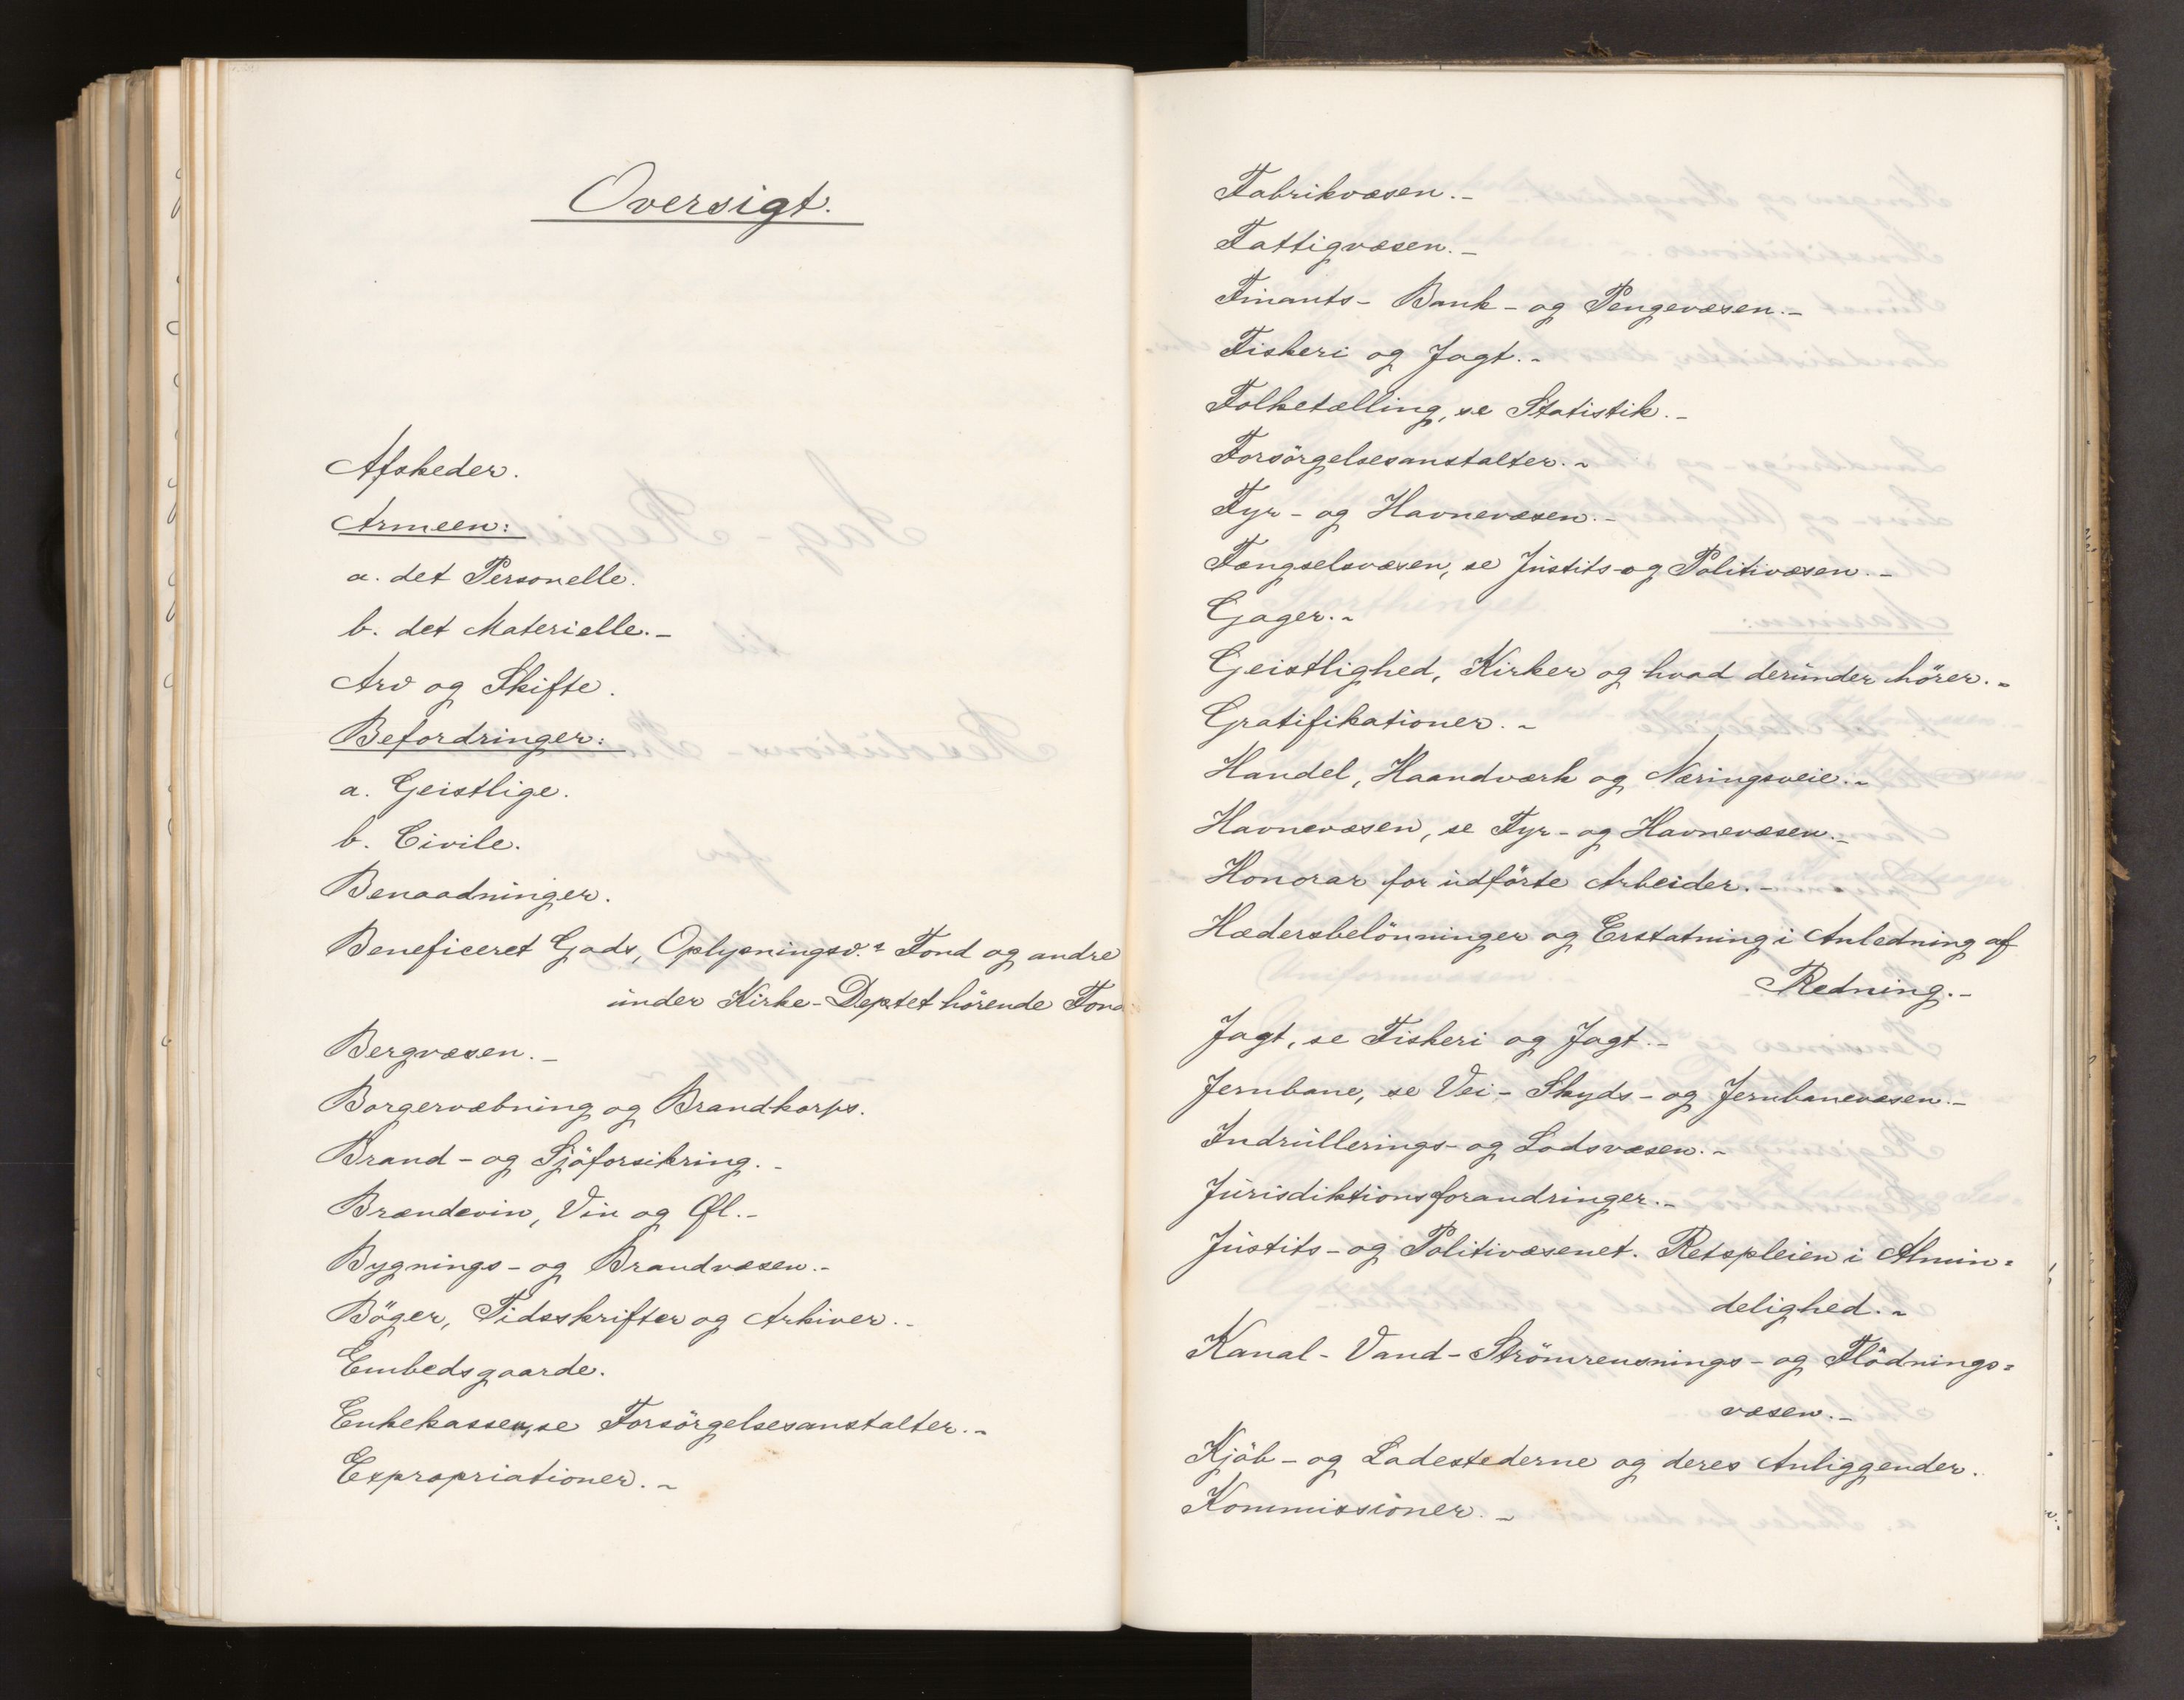 Oversigt.
Afskeder.
Armeen:
a. det Personelle.
b. det Materielle.-
Arv og Skifte.
Befordringer:
a. Geistlige.
b. Civile.
Benaadninger.
Beneficeret Gods, Oplysningsv.s Fond og andre
under Kirke-Deptet hörende Fond
Bergvæsen.-
Borgervæbning og Brandkorps.
Brand- og Sjöforsikring.-
Brændevin, Vin og Øl.-
Bygnings- og Brandvæsen.-
Böger, Tidsskrifter og Arkiver.-
Embedsgaarde.
Enkekassen, se Forsörgelsesanstalter.-
Expropriationer.-
Fabrikvæsen.-
Fattigvæsen.-
Finants- Bank- og Pengevæsen.-
Fiskeri og Jagt.-
Folketælling, se Statistik.-
Forsörgelsesanstalter.-
Fyr- og Havnevæsen.-
Fængselsvæsen, se Justits- og Politivæsen.-
Gager.-
Geistlighed, Kirker og hvad derunder hörer.-
Gratifikationer.-
Handel, Haandværk og Næringsveie.-
Havnevæsen, se Fyr- og Havnevæsen.-
Honorar for udförte Arbeider.-
Hædersbelönninger og Erstatning i Anledning af
Redning.-
Jagt, se Fiskeri og Jagt.-
Jernbane, se Vei- Skyds- og Jernbanevæsen.-
Indrullerings- og Lodsvæsen.-
Jurisdiktionsforandringer.-
Justits- og Politivæsenet. Retspleien i Almin=
delighed.-
Kanal- Vand- Strömrensnings- og Flödnings=
væsen.-
Kjöb- og Ladestederne og deres Anliggender.
Kommissioner.-